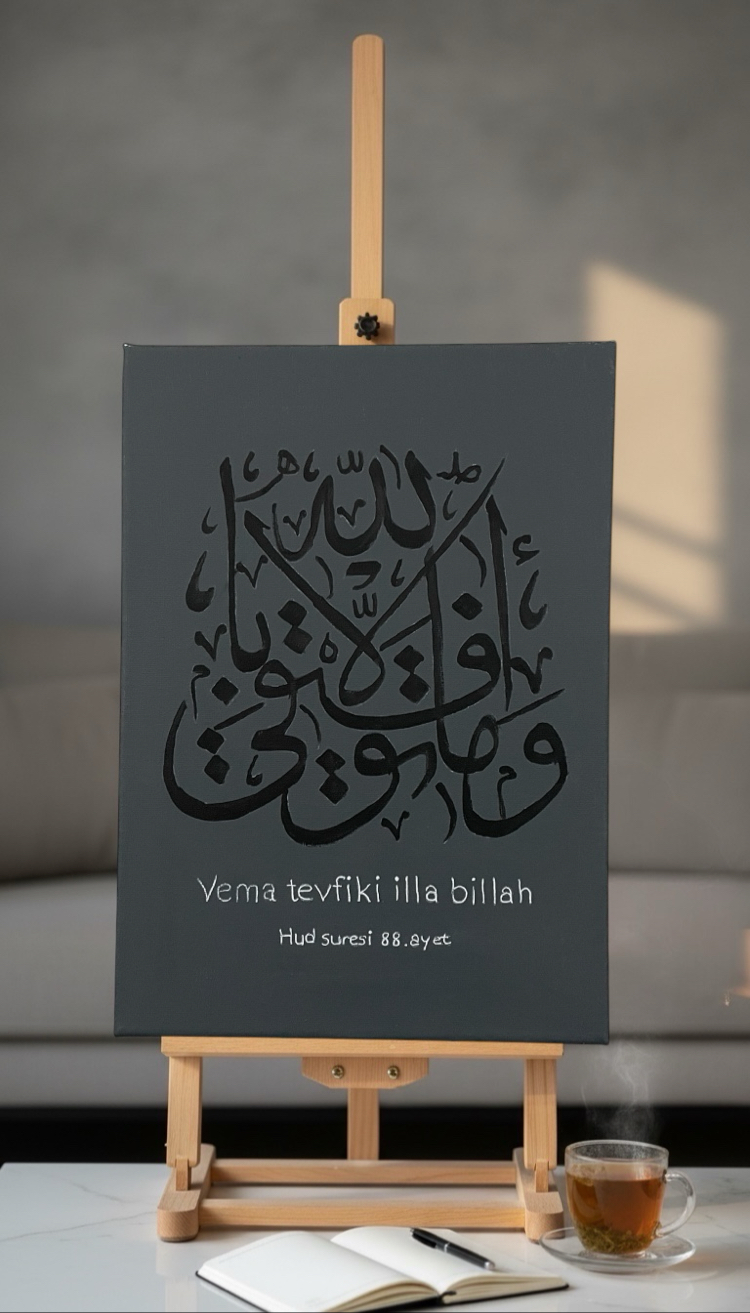 وما توفيقي إلا بالله
Vema tevfiki illa billah
Hud suresi 88.ayet